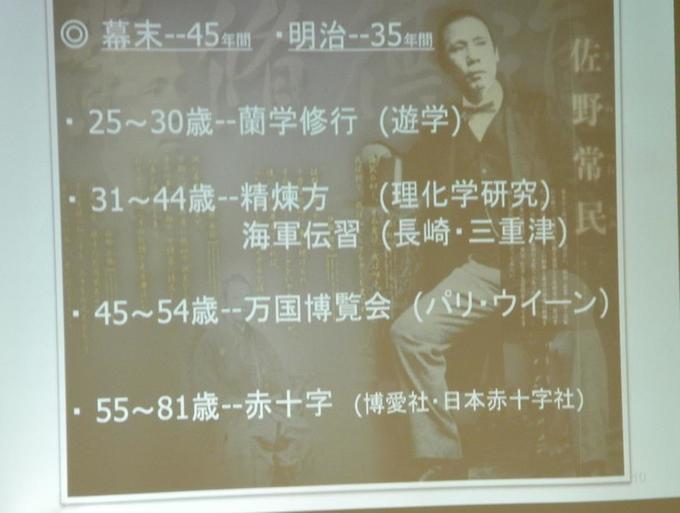 ◎ 幕末--45年間 ・明治--35年間
・25～30歳--蘭学修行 (遊学)
・31～44歳--精煉方 (理化学研究)
海軍伝習 (長崎・三重津)
・45～54歳--万国博覧会 (パリ・ウイーン)
・55～81歳--赤十字 (博愛社・日本赤十字社)
佐野常民
10